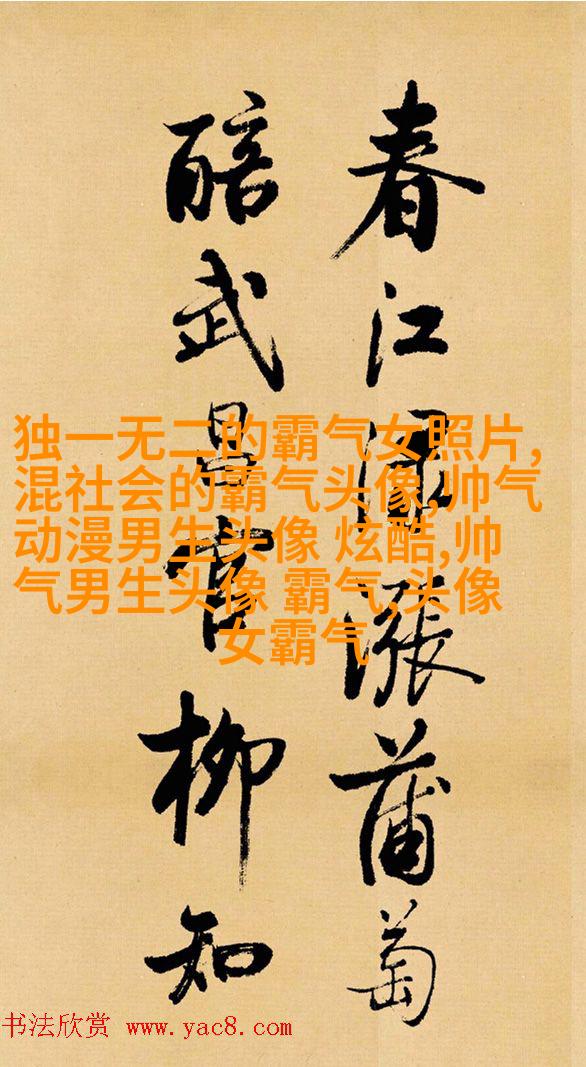 春江淥漲蒲萄
醅武昌官柳知
独一无二的霸气女照片,
混社会的霸气头像,帅气
动漫男生头像 炫酷,帅
气男生头像 霸气,头像
女霸气
书法欣赏 www.yac8.com